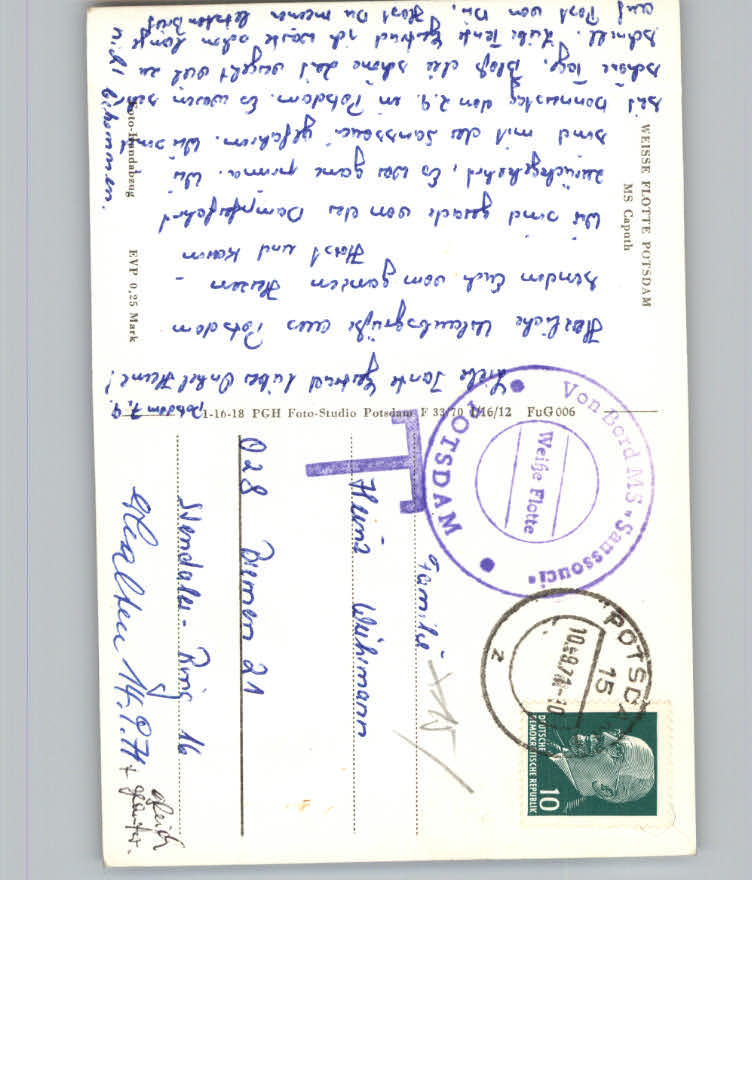 WEISSE FLOTTE POTSDAM
MS Caputh
Potsdam 7.9.
Liebe Tante Gertrud lieber Onkel Heine!
Herzliche Urlaubsgrüße aus Potsdam
senden Euch vom ganzen Herzen -
Horst und Karin
Wir sind gerade von der Dampferfahrt
zurückgekehrt, Es war ganz prima. Wir
sind mit der Sanssouci gefahren. Wir sind
seit Donnerstag den 2.9. in Potsdam. Es waren sehr
schöne Tage. Bloß die schöne Zeit vergeht viel zu
schnell. Liebe Tante Gertrud ich warte schon lange
auf Post von Dir. Hast Du meinen letzten Brief
nicht bekommen.
Foto-Handabzug
EVP 0,25 Mark
1-16-18 PGH Foto-Studio Potsdam F 33/70 1/16/12 FuG 006
Von Bord MS "Sanssouci"
POTSDAM
Weiße Flotte
T
POTSDAM
15
10.-9.71-10
z
DEUTSCHE
DEMOKRATISCHE REPUBLIK
10
Familie
Heinz
028 Bremen 21
Stendaler-Ring 16
erhalten 14.9.71 +
gleich